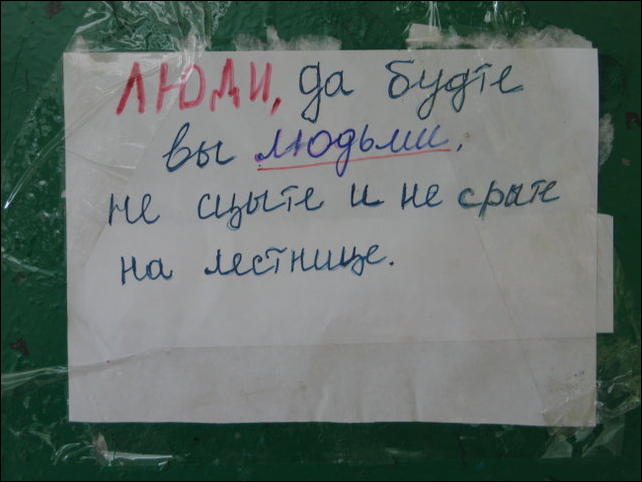 ЛЮДИ, да будте
вы людьми,
не сцыте и не срате
на лестнице.